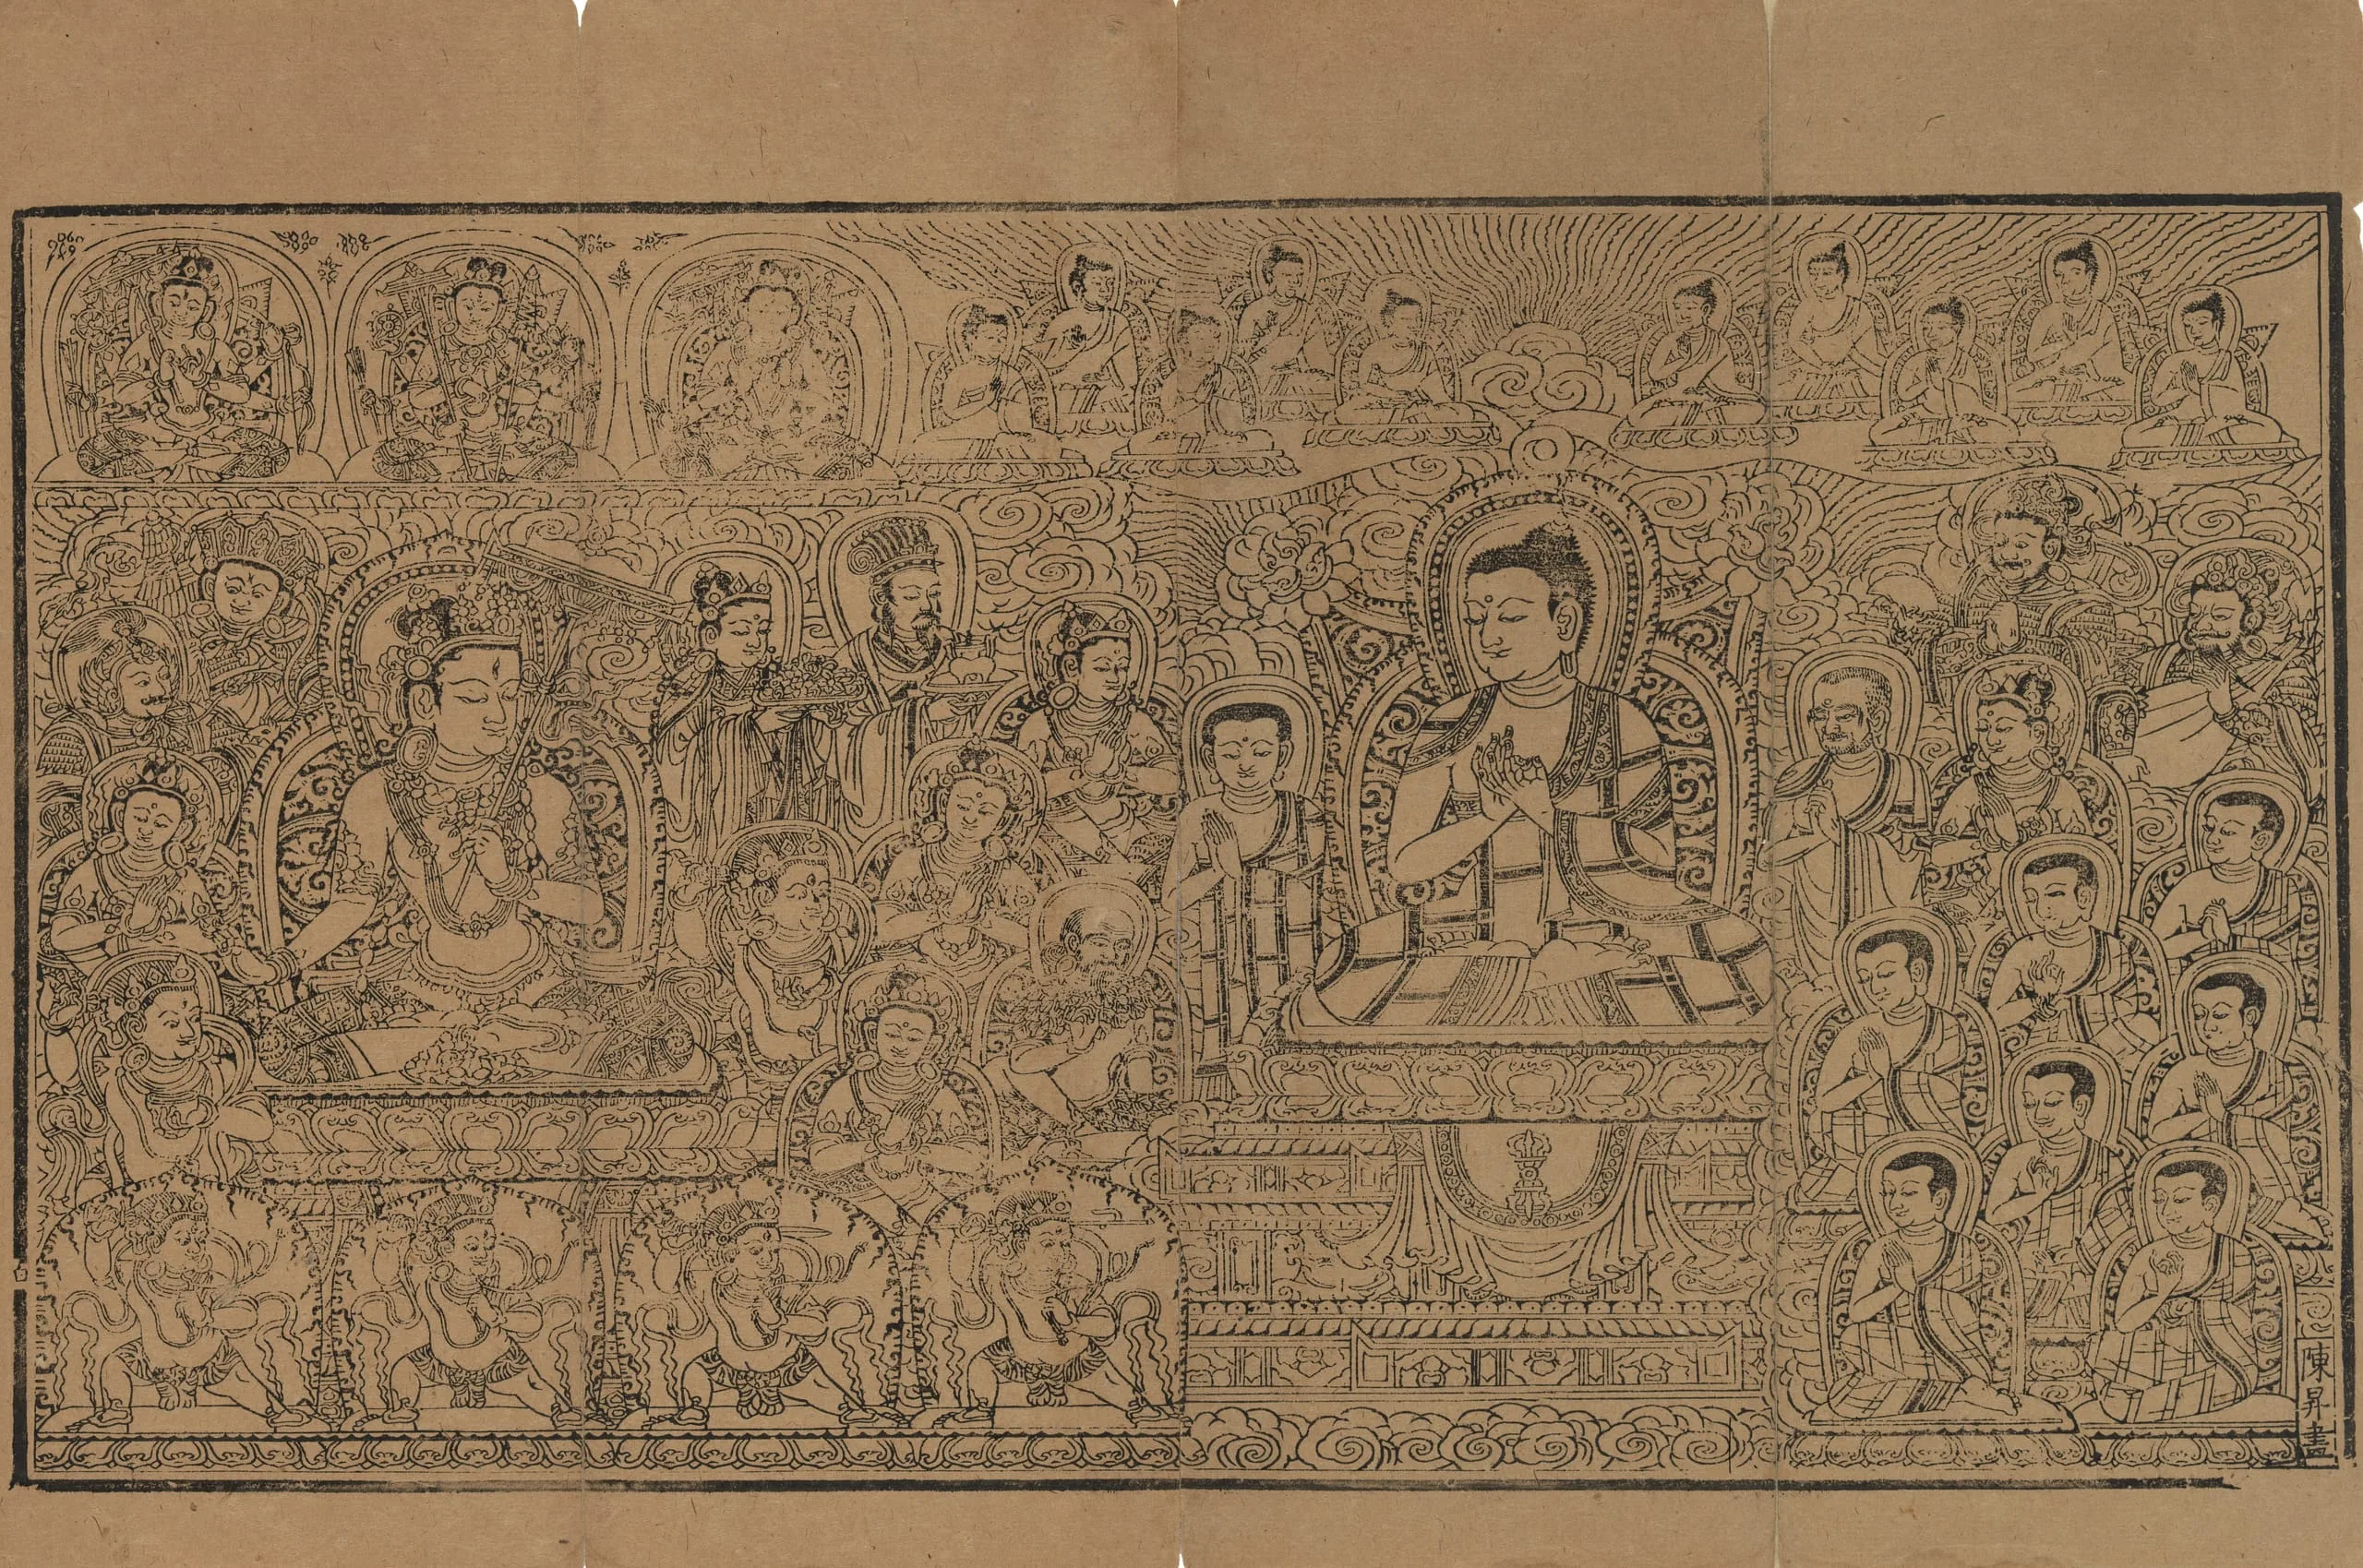 陳昇畫